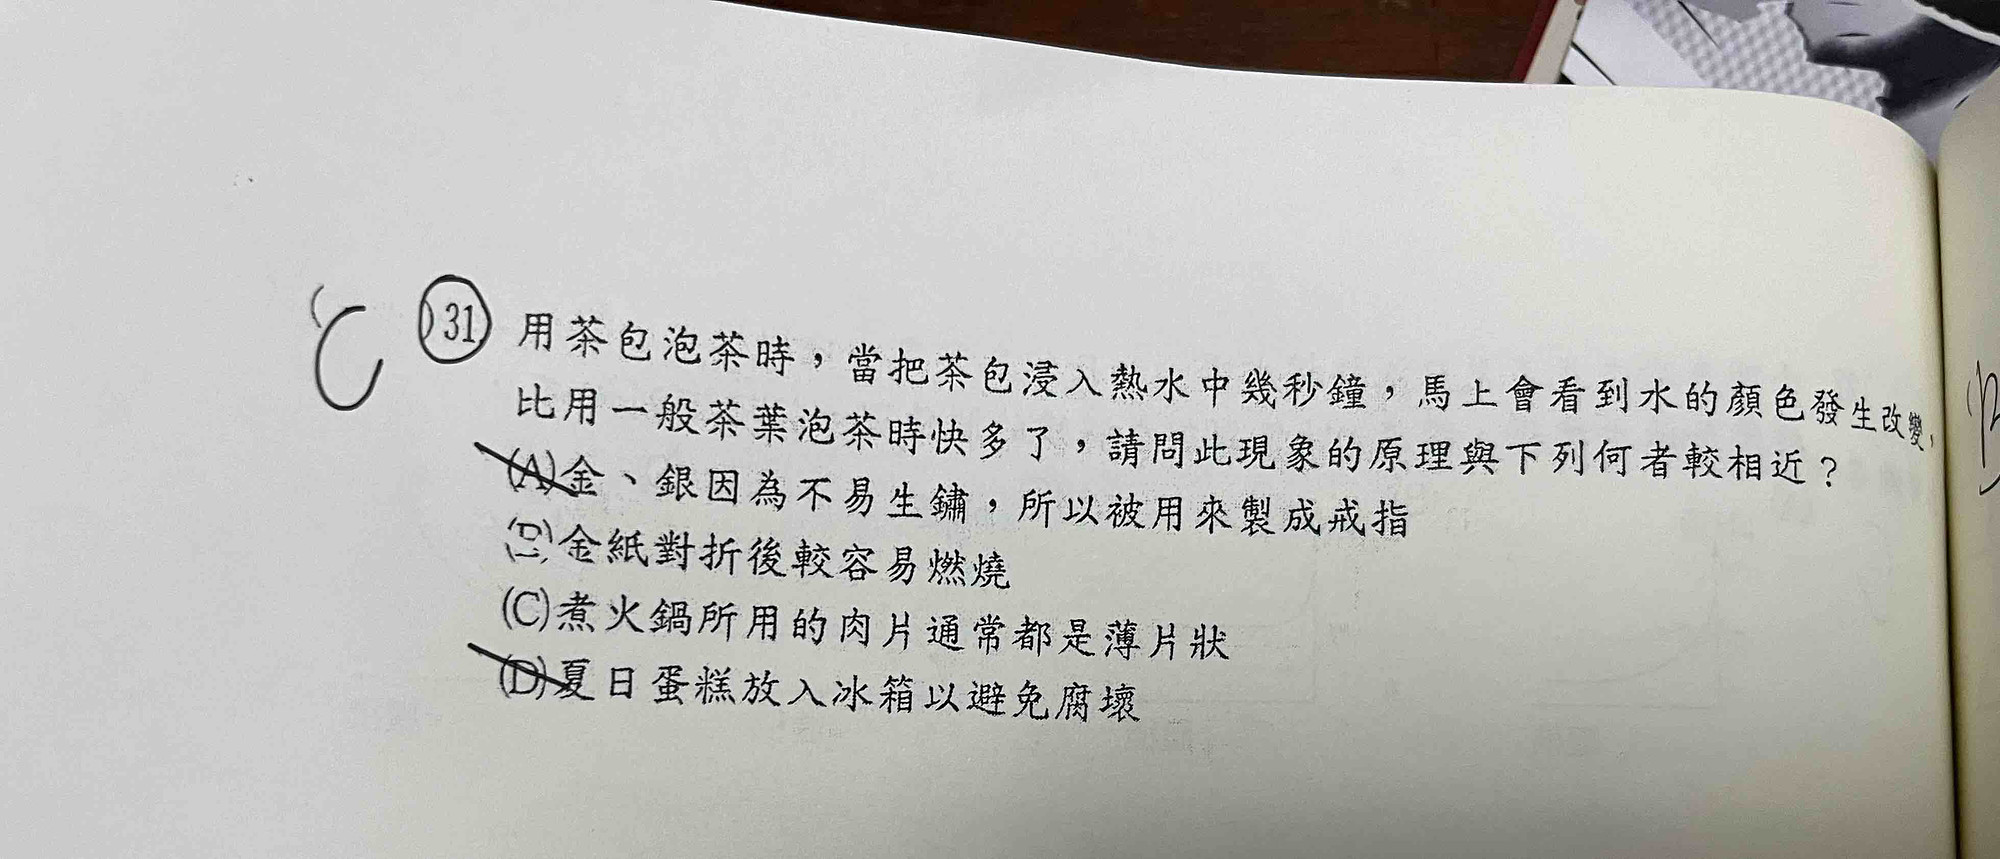 C ( )31 用茶包泡茶時，當把茶包浸入熱水中幾秒鐘，馬上會看到水的顏色發生改變，
比用一般茶葉泡茶時快多了，請問此現象的原理與下列何者較相近？
(A)金、銀因為不易生鏽，所以被用來製成戒指
(B)金紙對折後較容易燃燒
(C)煮火鍋所用的肉片通常都是薄片狀
(D)夏日蛋糕放入冰箱以避免腐壞